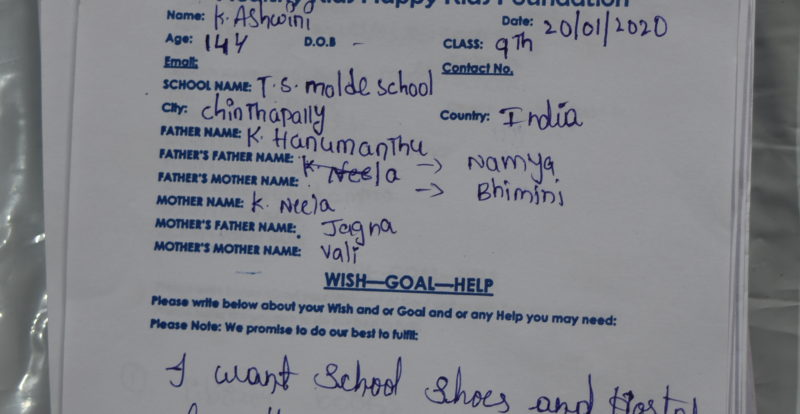 Healthy Kids Happy Kids Foundation
Name: K. Ashwini Date: 20/01/2020
Age: 14Y D.O.B - CLASS: 9Th
Email: Contact No.
SCHOOL NAME: T.S. molde school
City: chinThapally Country: India
FATHER NAME: K. Hanumanthu
FATHER'S FATHER NAME: K Neela → Namya
FATHER'S MOTHER NAME: → Bhimini
MOTHER NAME: K. Neela
MOTHER'S FATHER NAME: Jagna
MOTHER'S MOTHER NAME: Vali
WISH—GOAL—HELP
Please write below about your Wish and or Goal and or any Help you may need:
Please Note: We promise to do our best to fulfil:
I want School shoes and Hostel